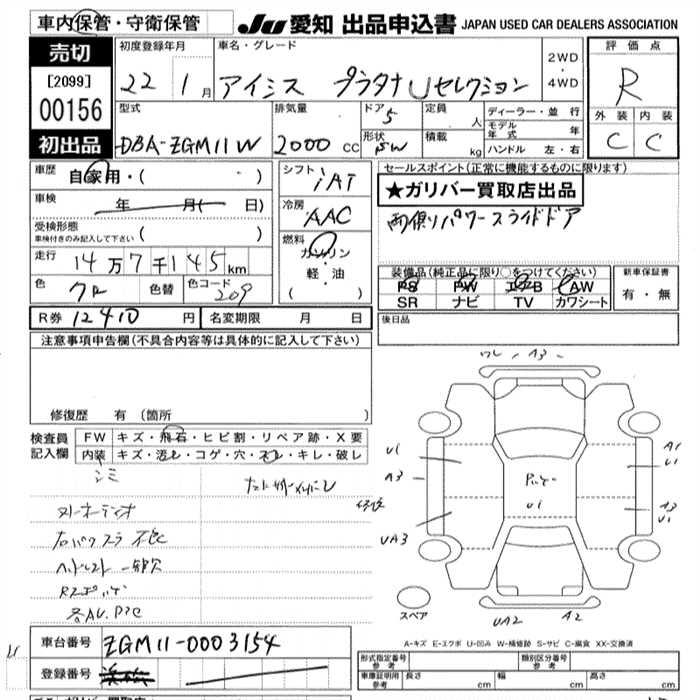 車内保管・守衛保管
JU 愛知 出品申込書 JAPAN USED CAR DEALERS ASSOCIATION
売切
[2099]
00156
初出品
初度登録年月
22 1月
車名・グレード
アイシス プラタナUセレクション
2WD
・
4WD
評価点
R
外装 内装
C C
型式
DBA-ZGM11W
排気量
2000 cc
ドア
5
形状
SW
定員
人
積載
kg
ディーラー・並行
モデル年式 年
ハンドル 左・右
車歴
自家用・( ・ )
車検
年 月( 日)
受検形態
車検付きのみ記入して下さい ( )
走行
14万7千145km
色
クロ
色替
色コード
209
シフト
iAT
冷房
AAC
燃料
ガソリン
軽・油
( )
セールスポイント(正常に機能するものに限ります)
★ガリバー買取店出品
両側パワースライドドア
装備品(純正品に限り○をつけてください)
PS PW エアB AW
SR ナビ TV カワシート
新車保証書
有・無
後日品
R券 12410 円
名変期限 月 日
注意事項申告欄(不具合内容等は具体的に記入して下さい)
修復歴 有(箇所 )
検査員
記入欄
FW キズ・飛石・ヒビ割・リペア跡・X要
内装 キズ・汚レ・コゲ・穴・スレ・キレ・破レ
シミ
ヌノオーディオ
右パワスラ不良
ヘッドレスト一部欠
各AV.PCC
ワレ A3
U1
A3
UA3
A1
U1
A3
U1
U1
UA2 A2
スペア
A-キズ E-エクボ U-凹み W-補修跡 S-サビ C-腐食 XX-交換済
車台番号 ZGM11-0003154
登録番号
形式指定番号
参考
類別区分番号
参考
車庫証明用
参考
長さ cm
幅 cm
高さ cm